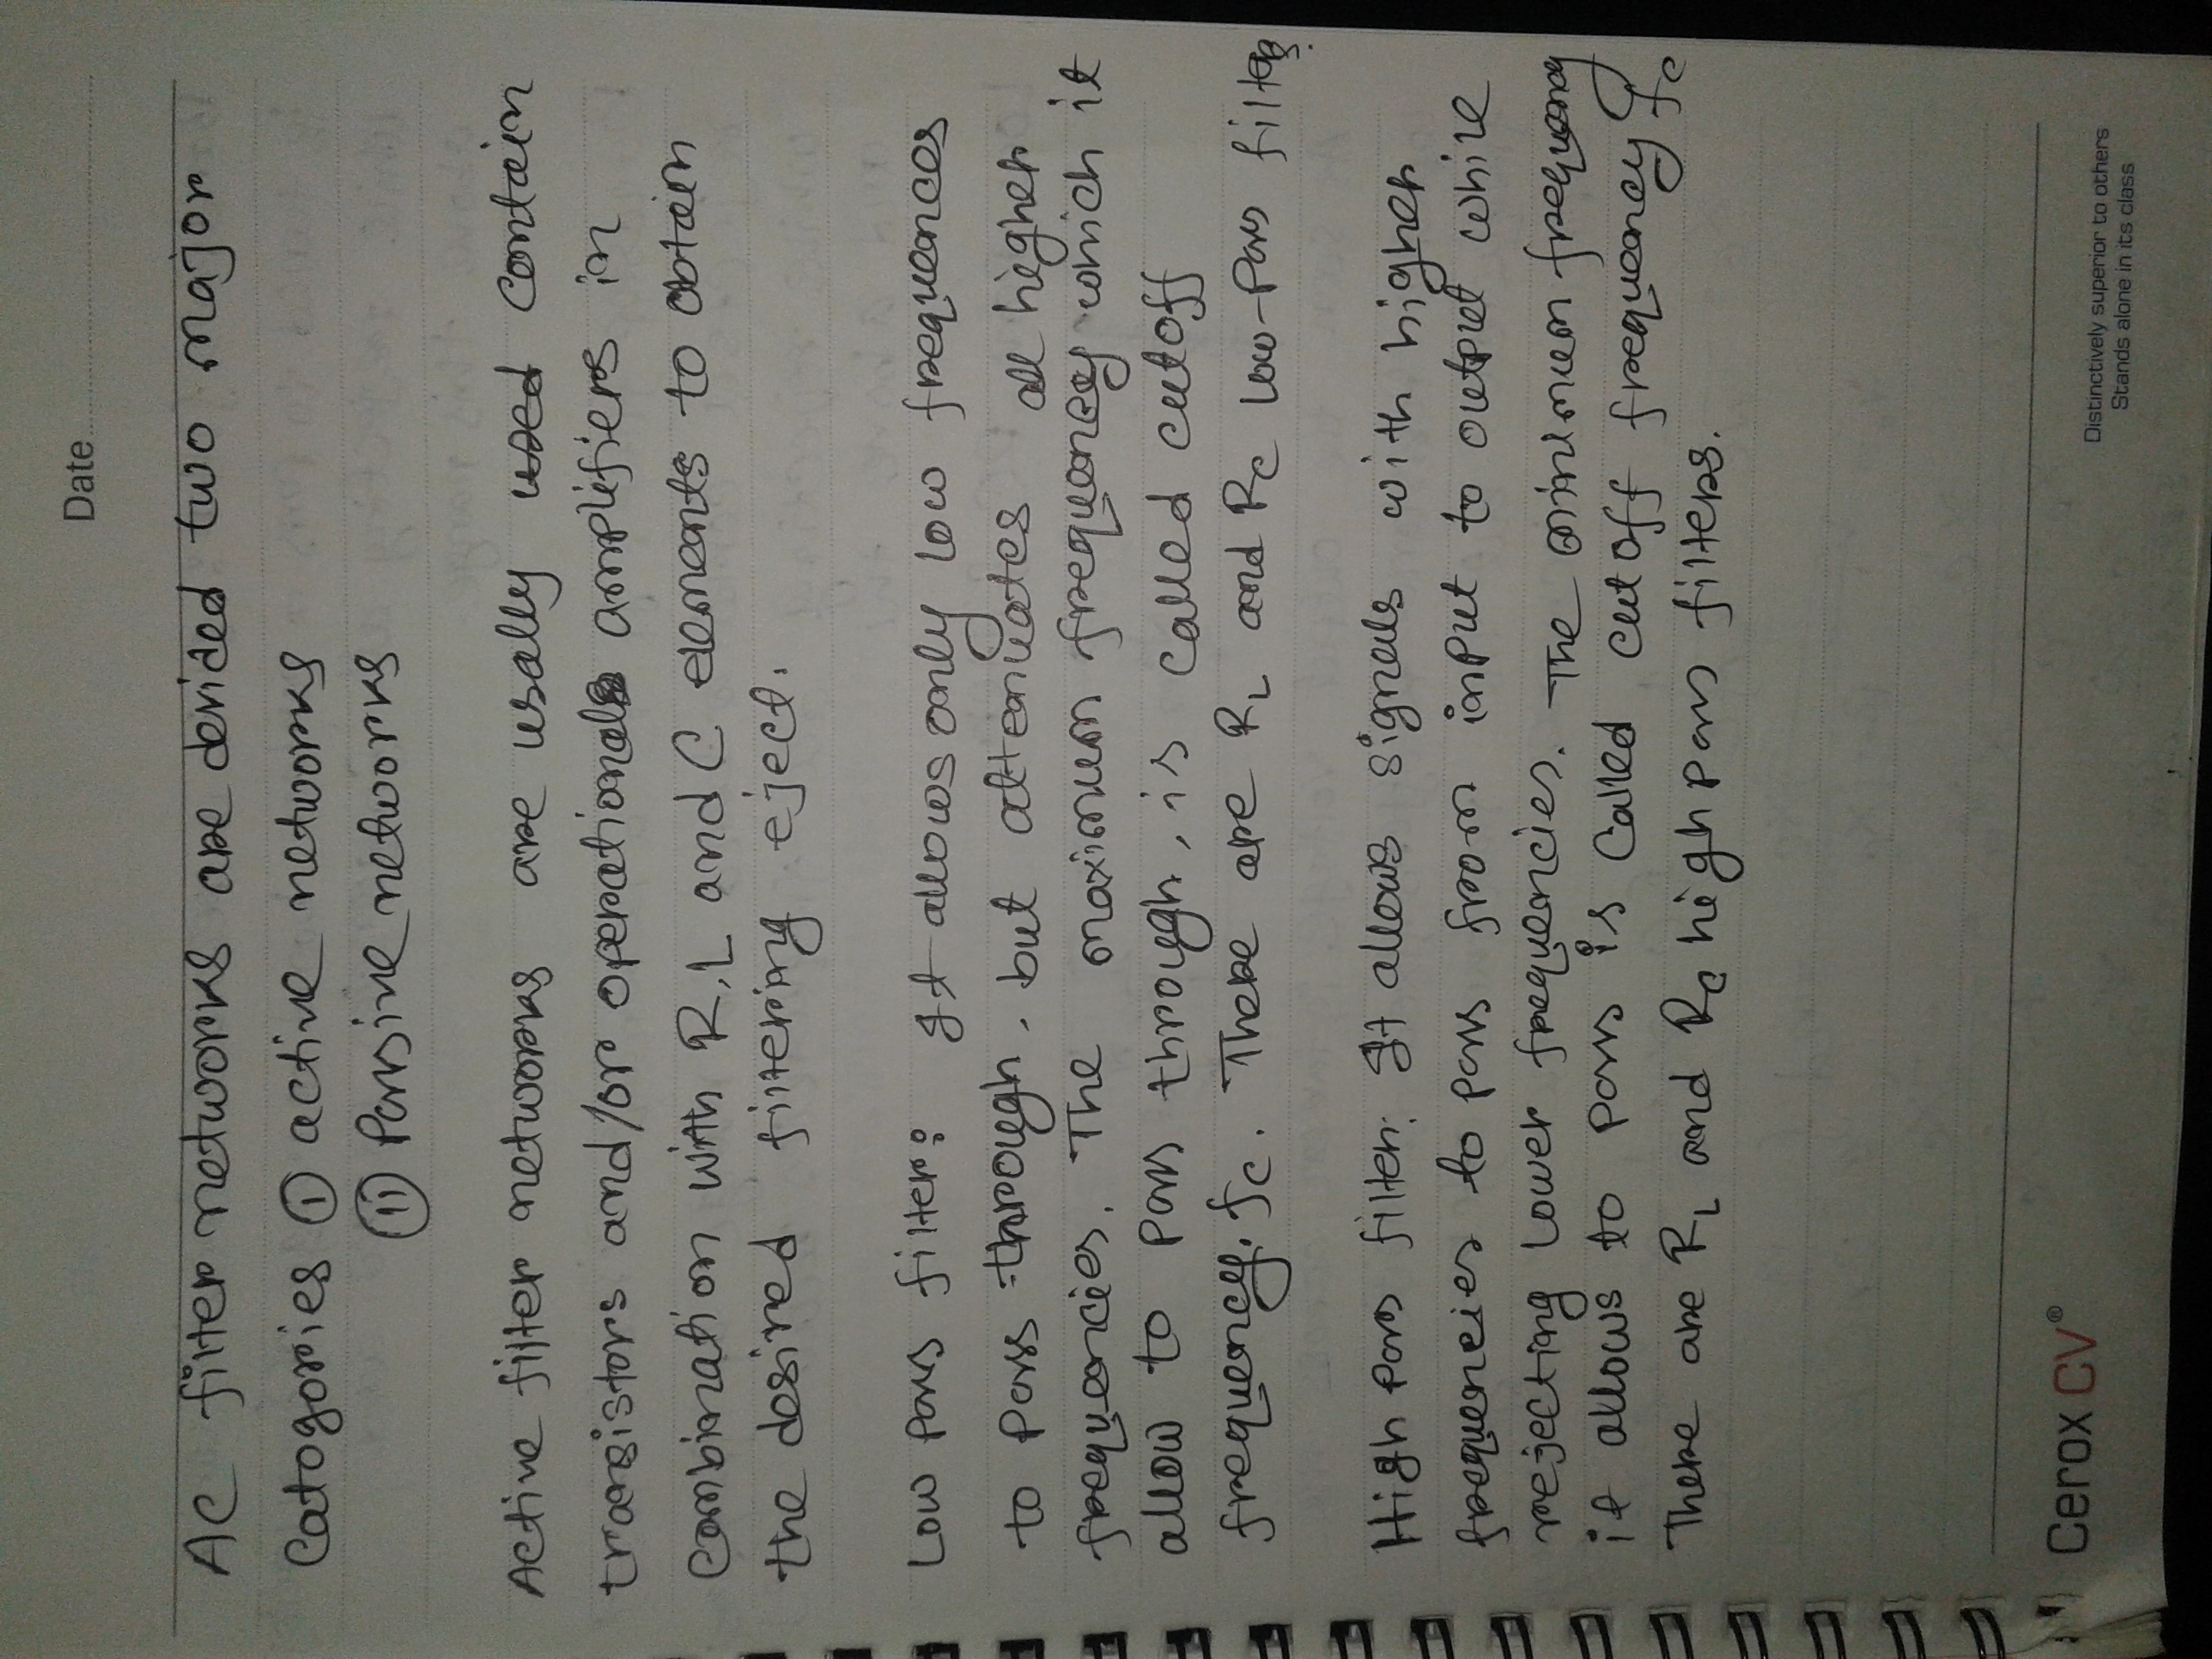 Date
AC filter networks are devided two major
Catogories (i) active networks
(ii) Passive networks
Active filter networks are usally used contain
transistors and/or operational amplifiers in
combination with R,L and C elements to obtain
the desired filtering eject.
Low pass filter: It allows only low frequences
to pass through, but attenuates all higher
frequencies. The maximum frequency which it
allow to pass through, is called cutoff
frequency. fc. There are RL and RC low-pass filters.
High pass filter: It allows signals with higher
frequencies to pass from input to output while
rejecting lower frequencies. The minimum frequency
it allows to pass is called cutoff frequency fc
There are RL and RC high pass filters.
Cerox CV®
Distinctively superior to others
Stands alone in its class